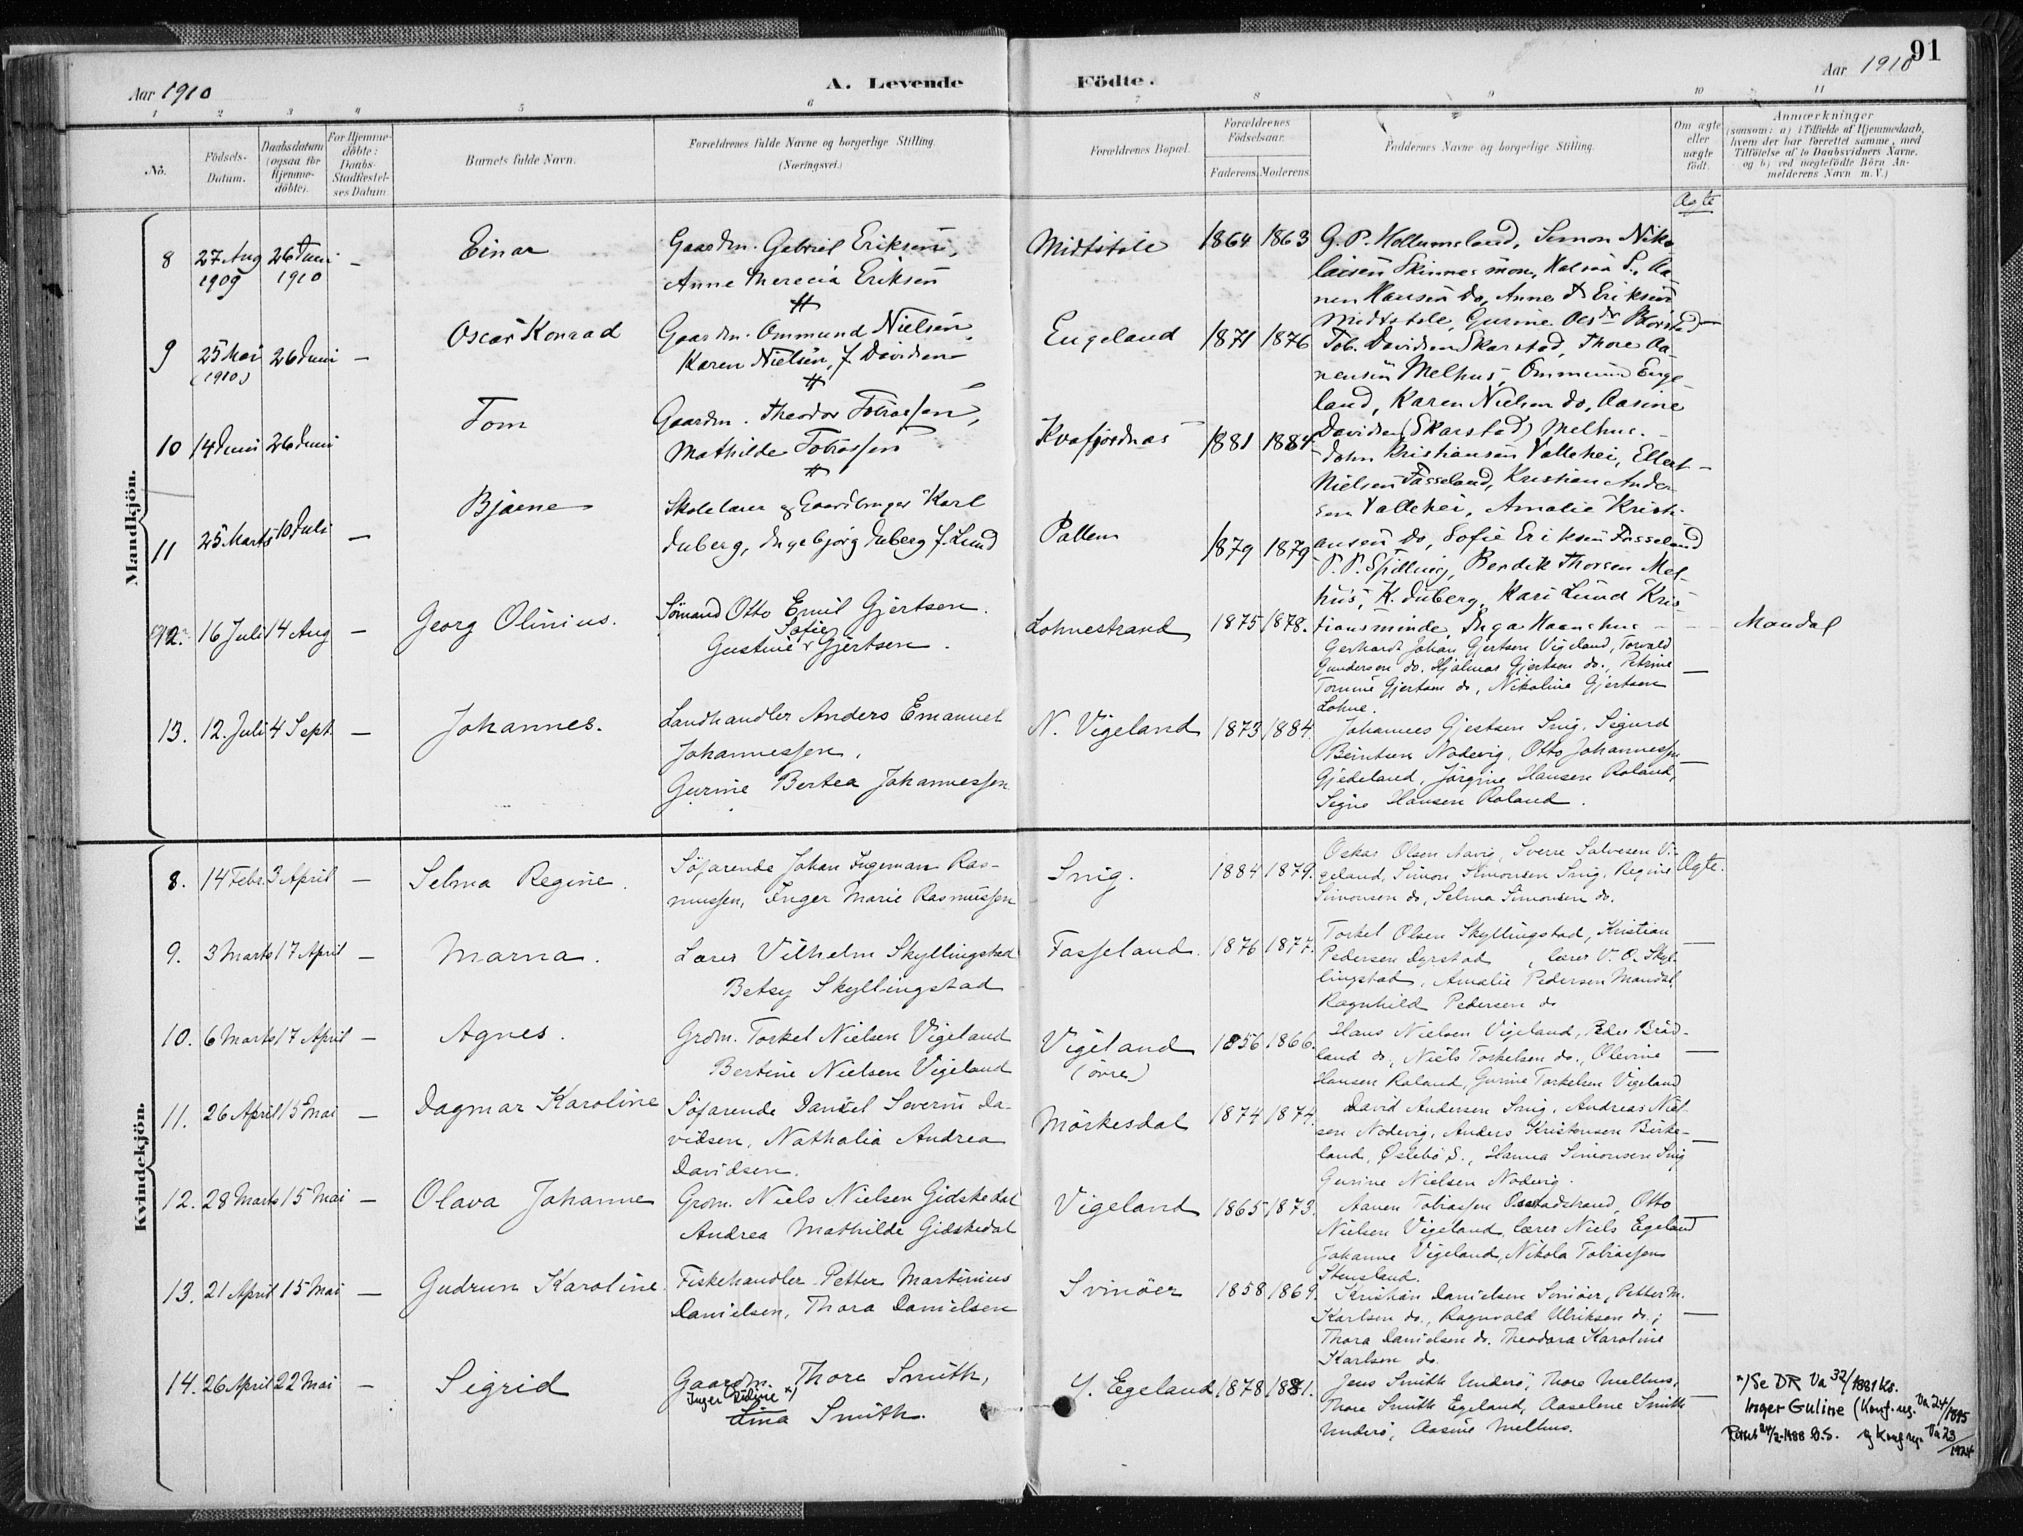 91
Aar 1910
A. Levende Födte.
Aar 1910
1 2 3 4 5 6 7 8 9 10 11
No.
Födsels-Datum.
Daabsdatum (ogsaa for Hjemme-döbte).
For Hjemme-döbte: Daabs-Stadfæstel-ses Datum.
Barnets fulde Navn.
Forældrenes fulde Navne og borgerlige Stilling. (Næringsvei.)
Forældrenes Bopæl.
Forældrenes Födselsaar.
Faderens. Moderens.
Faddernes Navne og borgerlige Stilling.
Om ægte eller uægte födt.
Anmærkninger
(saasom: a) i Tilfælde af Hjemmedaab, hvem der har forrettet samme, med Tilföielse af to Daabsvidners Navne. og b) ved uægtefödte Börn An-melderens Navn m. V.)
Mandkjön.
Ægte
8 27 Aug 1909 26 Juni 1910 – Einar
Gaardm. Gabriel Eriksen,
Anne Therecia Eriksen
Midtstøle 1864 1863
G. P. Hollumsland, Simon Niko
laisen Skinnesmoen,
nen Hansen do, Anne Eriksen
Midtstøle, Gurine
9 25 Mai (1910) 26 Juni – Oscar Konrad
Gaardm. Ommund Nielsen,
Karen Nielsen, f Davidsen
Eugeland 1871 1876
Tob. Davidsen Skarstad, Thore Aa-
nensen Melhus, Ommund Enge-
land, Karen Nielsen do, Aasine
Davidsen (Skarstad) Melhus.
10 14 Juni 26 Juni Tom
Gaardm. Theodor Tobiassen,
Mathilde Tobiassen
Kvafjordnæs 1881 1884
John Kristiansen Vallehei, Ellert
Nielsen Fasseland, Kristian Ander-
sen Vallehei, Amalie Kristi-
ansen do, Sofie Eriksen Fasseland
11 25 Marts 10 Juli – Bjarne
Skolelærer og Gaardbruger Karl
Duberg, Ingebjørg Duberg f. Lund
Pollem 1879 1879
P. P. Spilling, Bendik Thorsen Mel-
hus, K. Duberg, Kari Lund Kris-
tiansminde, Inga
12. 16 Juli 14 Aug – Georg Olinius.
Sømand Otto Emil Gjertsen.
Gustine Sofie Gjertsen.
Lohnestrand 1875 1878.
Gerhardt Johan Gjertsen Vigeland, Torvald
Gundersen do. Hjalmar Gjertsen do., Petrine
Tomine Gjertsen do, Nikoline Gjertsen
Lohne.
Mandal
13. 12. Juli 4 Sept. – Johannes.
Landhandler Anders Emanuel
Johannessen,
Gurine Bertea Johannessen
N. Vigeland 1873 1884.
Johannes Gjertsen Snig, Sigurd
Berntsen Nodevig, Otto Johannessen
Gjedeland, Jørgine Hansen Roland,
Signe Hansen Roland.
Kvindekjön.
8. 14 Febr. 3 April – Selma Regine.
Søfarende Johan Ingeman Ras-
mussen, Inger Marie Rasmussen
Snig. 1884 1879.
Oskar Olsen Navig, Sverre Salvesen Vi-
geland, Simon Simonsen Snig, Regine
Simonsen do, Selma Simonsen do.
Ægte.
9. 3 Marts 17 April – Marna.
Lærer Vilhelm Skyllingstad
Betsy Skyllingstad
Fasseland. 1876 1877.
Torkel Olsen Skyllingstad, Kristian
Pedersen Dyrstad, lærer V. O. Skyl-
lingstad, Amalie Pedersen Mandal,
Ragnhild Pedersen do
10. 6 Marts 17 April – Agnes.
Grdm. Torkel Nielsen Vigeland
Bertine Nielsen Vigeland
Vigeland (øvre) 1856 1866.
Hans Nielsen Vigeland, Peder Bråd-
land do., Niels Torkelsen do., Olevine
Hansen Roland, Gurine Torkelsen Vigeland
11. 26 April 15 Mai – Dagmar Karoline
Søfarende Daniel Severin Da-
vidsen, Nathalia Andrea
Davidsen.
Mörkesdal 1874 1874.
David Andersen Snig, Andreas Niel-
sen Nodevig, Anders Kristensen Birke-
land, Øslebø S., Hanna Simonsen Snig
Gurine Nielsen Nodevig.
12. 28 Marts 15 Mai – Olava Johanne
Grdm. Niels Nielsen Gidskedal
Andrea Mathilde Gidskedal
Vigeland 1865 1873.
Aanen Tobiassen Oxstadstrand, Otto
Nielsen Vigeland, lærer Niels Egeland
Johanne Vigeland, Nikola Tobiassen
Stensland.
13. 21 April 15 Mai – Gudrun Karoline.
Fiskehandler Petter Martinius
Danielsen, Thora Danielsen
Svinöer 1858 1869.
Kristian Danielsen Svinöer, Petter M.
Karlsen do., Ragnvald Ulriksen do.,
Thora Danielsen do. Theodora Karoline
Karlsen do.
14. 26 April 22 Mai – Sigrid
Gaardm. Thore Smith,
Inger Guline *)
Lina Smith.
Y. Egeland 1878 1881.
Jens Smith Underø, Thore Melhus,
Thore Smith Egeland, Aaselene Smith
Underø, Aasine Melhus.
*) Se DR Va 32/1881 Ks.
Inger Guline (Konf. reg. Va 24/1895
Rettet 24/2-1988 og Konf reg. Va 23/1924